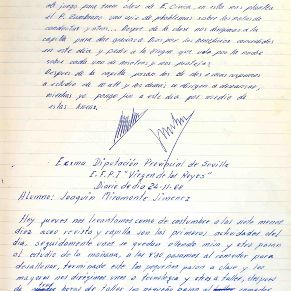 de juego para tener clase de E. Cívica, en esta nos plantea
el P. Zambrano una serie de problemas sobre las notas de
conducta y otros... Después de la clase nos dirigimos a la
capilla para dar gracias a Dios por los beneficios concedidos
en este día y pedir a la Virgen que vele por la noche
sobre cada uno de nosotros y nos proteja.
Después de la capilla pasan los de
a estudio de y los demás se dirigen a descansar,
mientras yo pongo fin a este día por medio de
estas líneas.
Excma Diputación Provincial de Sevilla
E.F.P.I "Virgen de los Reyes"
Diario de dia 24-11-66
Alumno: Joaquín Miramonte Jimenez
Hoy jueves nos levantamos como de costumbre a las siete menos
diez aseo revista y capilla son las primeras actividades del
día, seguidamente unos se quedan oyendo misa y otros pasan
al estudio de la mañana, a las 8'30 pasamos al comedor para
desayunar, terminado este los pequeños pasan a clase y los
mayores nos dirigimos unos a tecnología y otros a taller, después
de horas de taller los pequeños pasan al comedor